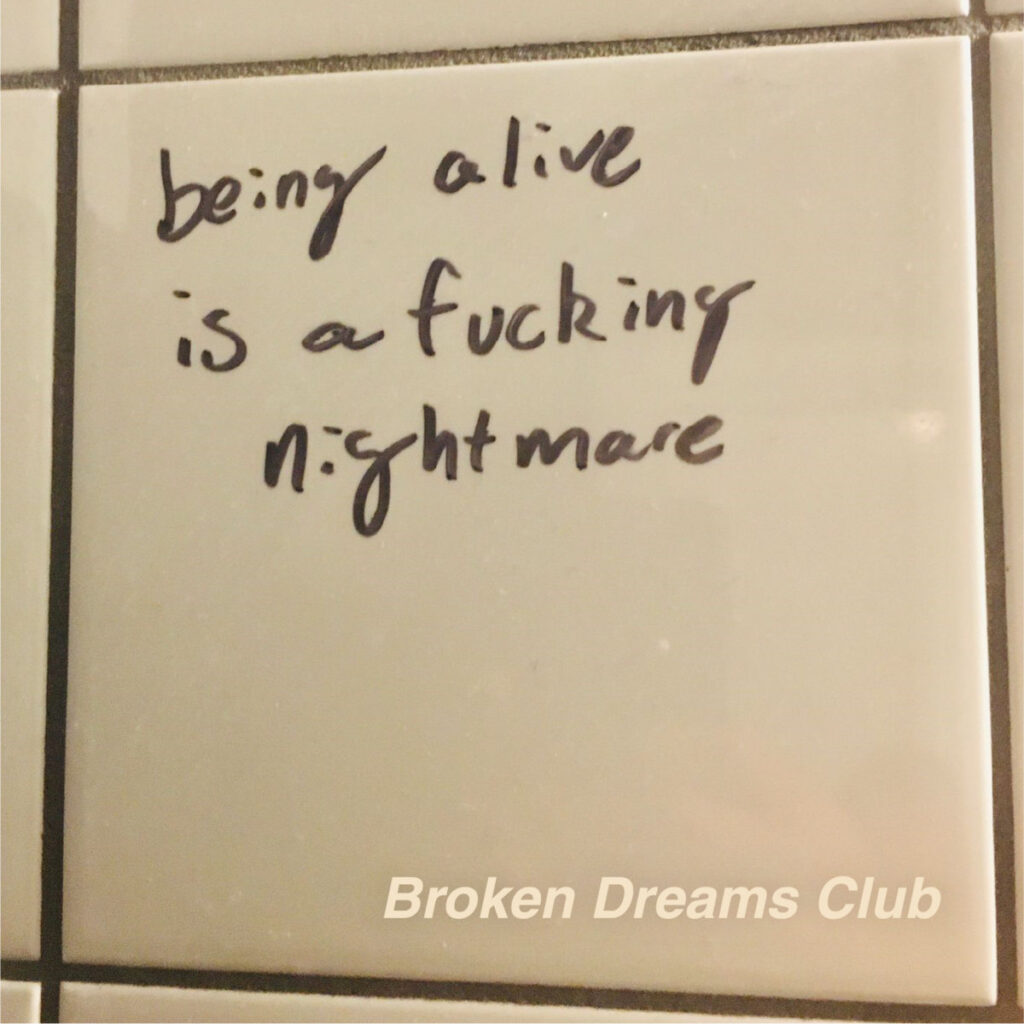 being alive
is a fucking
nightmare
Broken Dreams Club